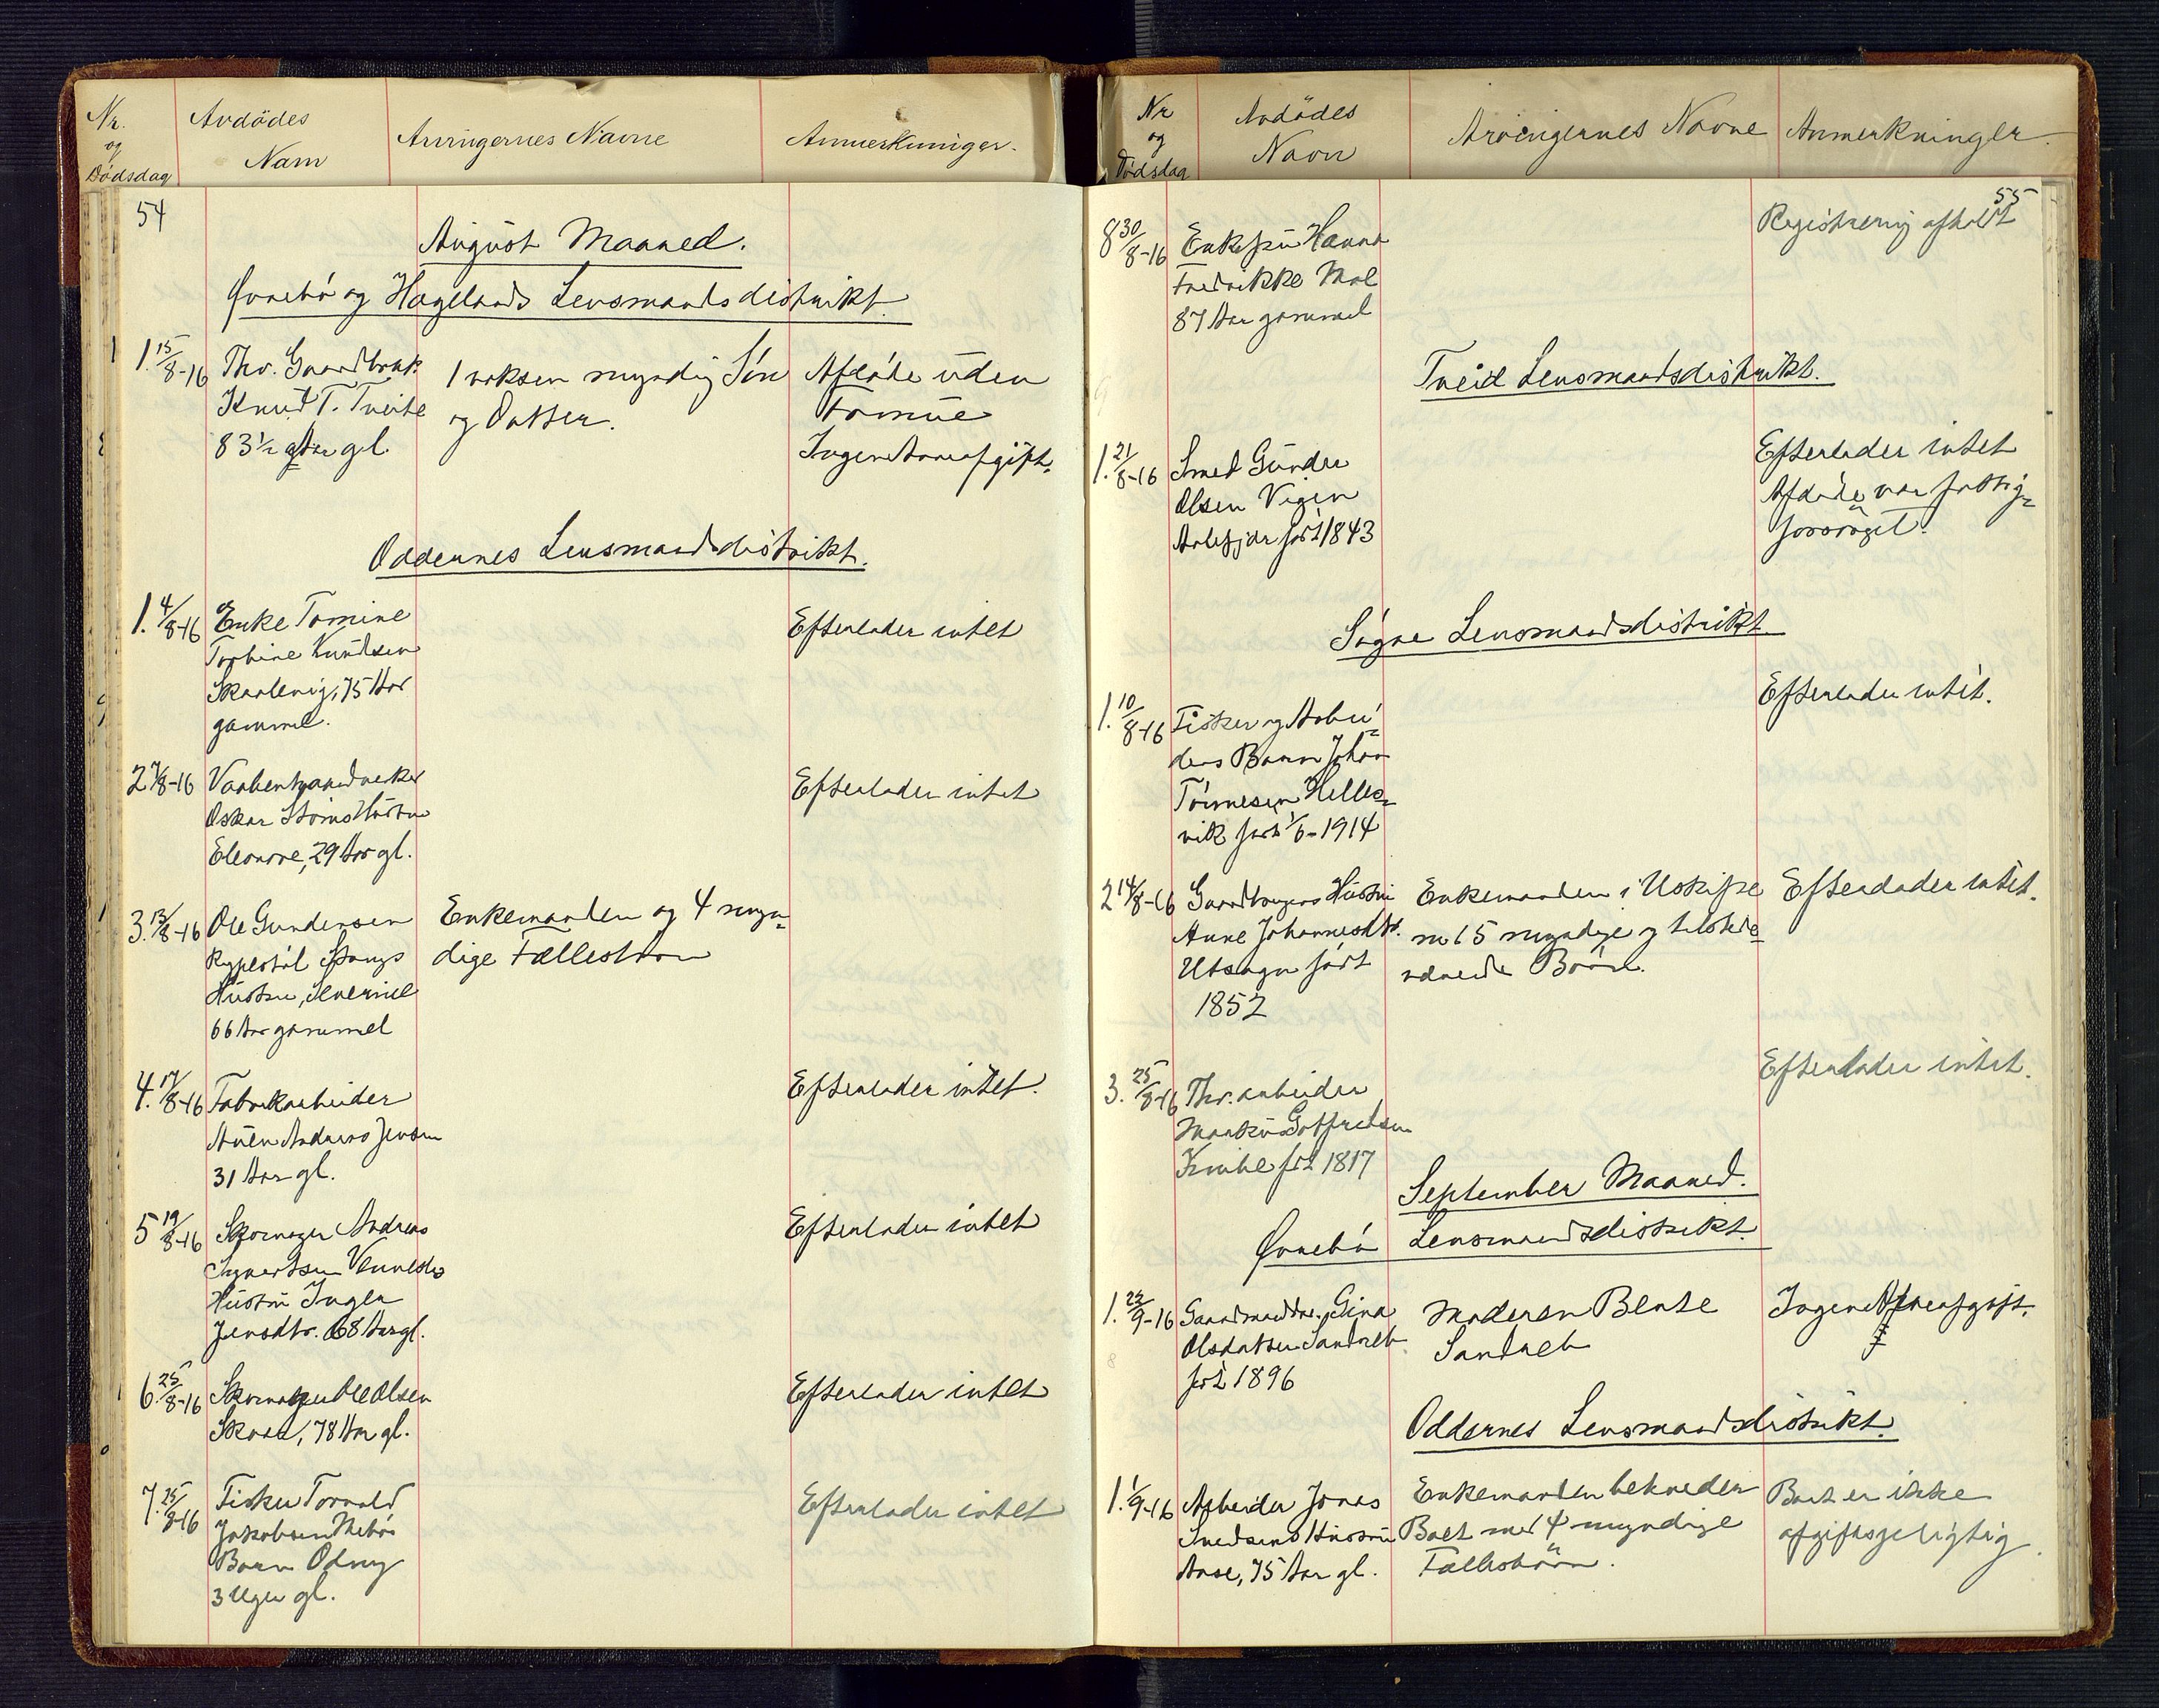 Nr.
og
Dödsdag
Avdödes
Navn
Arvingernes Navne
Anmerkninger.
54
August Maaned.
Øvrebö og Hægelands Lensmandsdistrikt.
1. 15/8-16 Fhv. Gaardbruk.
Knud T. Tveite
83 1/2 Aar gl.
1 voksen myndig Sön
og Datter.
Afdöde uden
Formue
Ingen Arveafgift.
Oddernes Lensmandsdistrikt.
1. 4/8-16 Enke Tomine
Torbine Knudsen
Skaalevig, 75 Aar
gammel.
Efterlader intet
2 7/8-16
Oskar
Eleonore, 29 Aar gl.
Efterlader intet
3. 13/8-16 Ole Gundersen
Rypestöl Stangs
Hustru, Severine
66 Aar gammel
Enkemanden og 4 myn-
dige Fællesbörn
4. 17/8-16 Fabrikarbeider
Andreas Jensen
31 Aar gl.
Efterlader intet.
5 19/8-16 Skomager Andreas
Ingvertsen Vennesla
Hustru Inger
Jensdtr. 68 Aar gl.
Efterlader intet
6. 25/8-16 Skomager Ole Olsen
Skaar, 78 Aar gl.
Efterlader intet
7. 25/8-16 Fisker Torvald
Jakobsen
Barn Odny
3 Uger gl.
Efterlader intet
Nr
og
Dödsdag
Avdödes
Navn
Arvingernes Navne
Anmerkninger.
55
8 30/8-16 Enkefru Hanna
Fredrikke Moe
87 Aar gammel
Registrering afholdt
Tveid Lensmandsdistrikt.
1. 21/8-16 Smed Gunder
Olsen Vigen
Aalefjær född 1843
Efterlader intet
Afdöde var fattig-
forsörget.
Sögne Lensmandsdistrikt
1. 10/8-16 Fisker og Arbei-
ders Barn Johan
Tönnesen Helles-
vik född 1/6-1914
Efterlader intet.
2 14/8-16 Gaardbrugers Hustru
Anne Johannesdtr.
Utsogn född
1852
Enkemanden i Uskifte
med 5 myndige og tilstede-
værende Börn.
Efterlader intet.
3. 25/8-16 Fhv. arbeider
Markus Gotfredsen
född 1817
Efterlader intet.
September Maaned.
Øvrebö Lensmandsdistrikt.
1. 22/9-16 Gaardmanddtr. Gina
Olsdatter Sandreb
född 1896
Moderen Bente
Sandreb
Ingen Arveafgift.
Oddernes Lensmandsdistrikt.
1. 1/9-16 Arbeider Jonas
Svedsens Hustru
Aase, 75 Aar gl.
Enkemanden bekræder
Boet med 4 myndige
Fællesbörn.
Boet er ikke
afgiftspligtig.